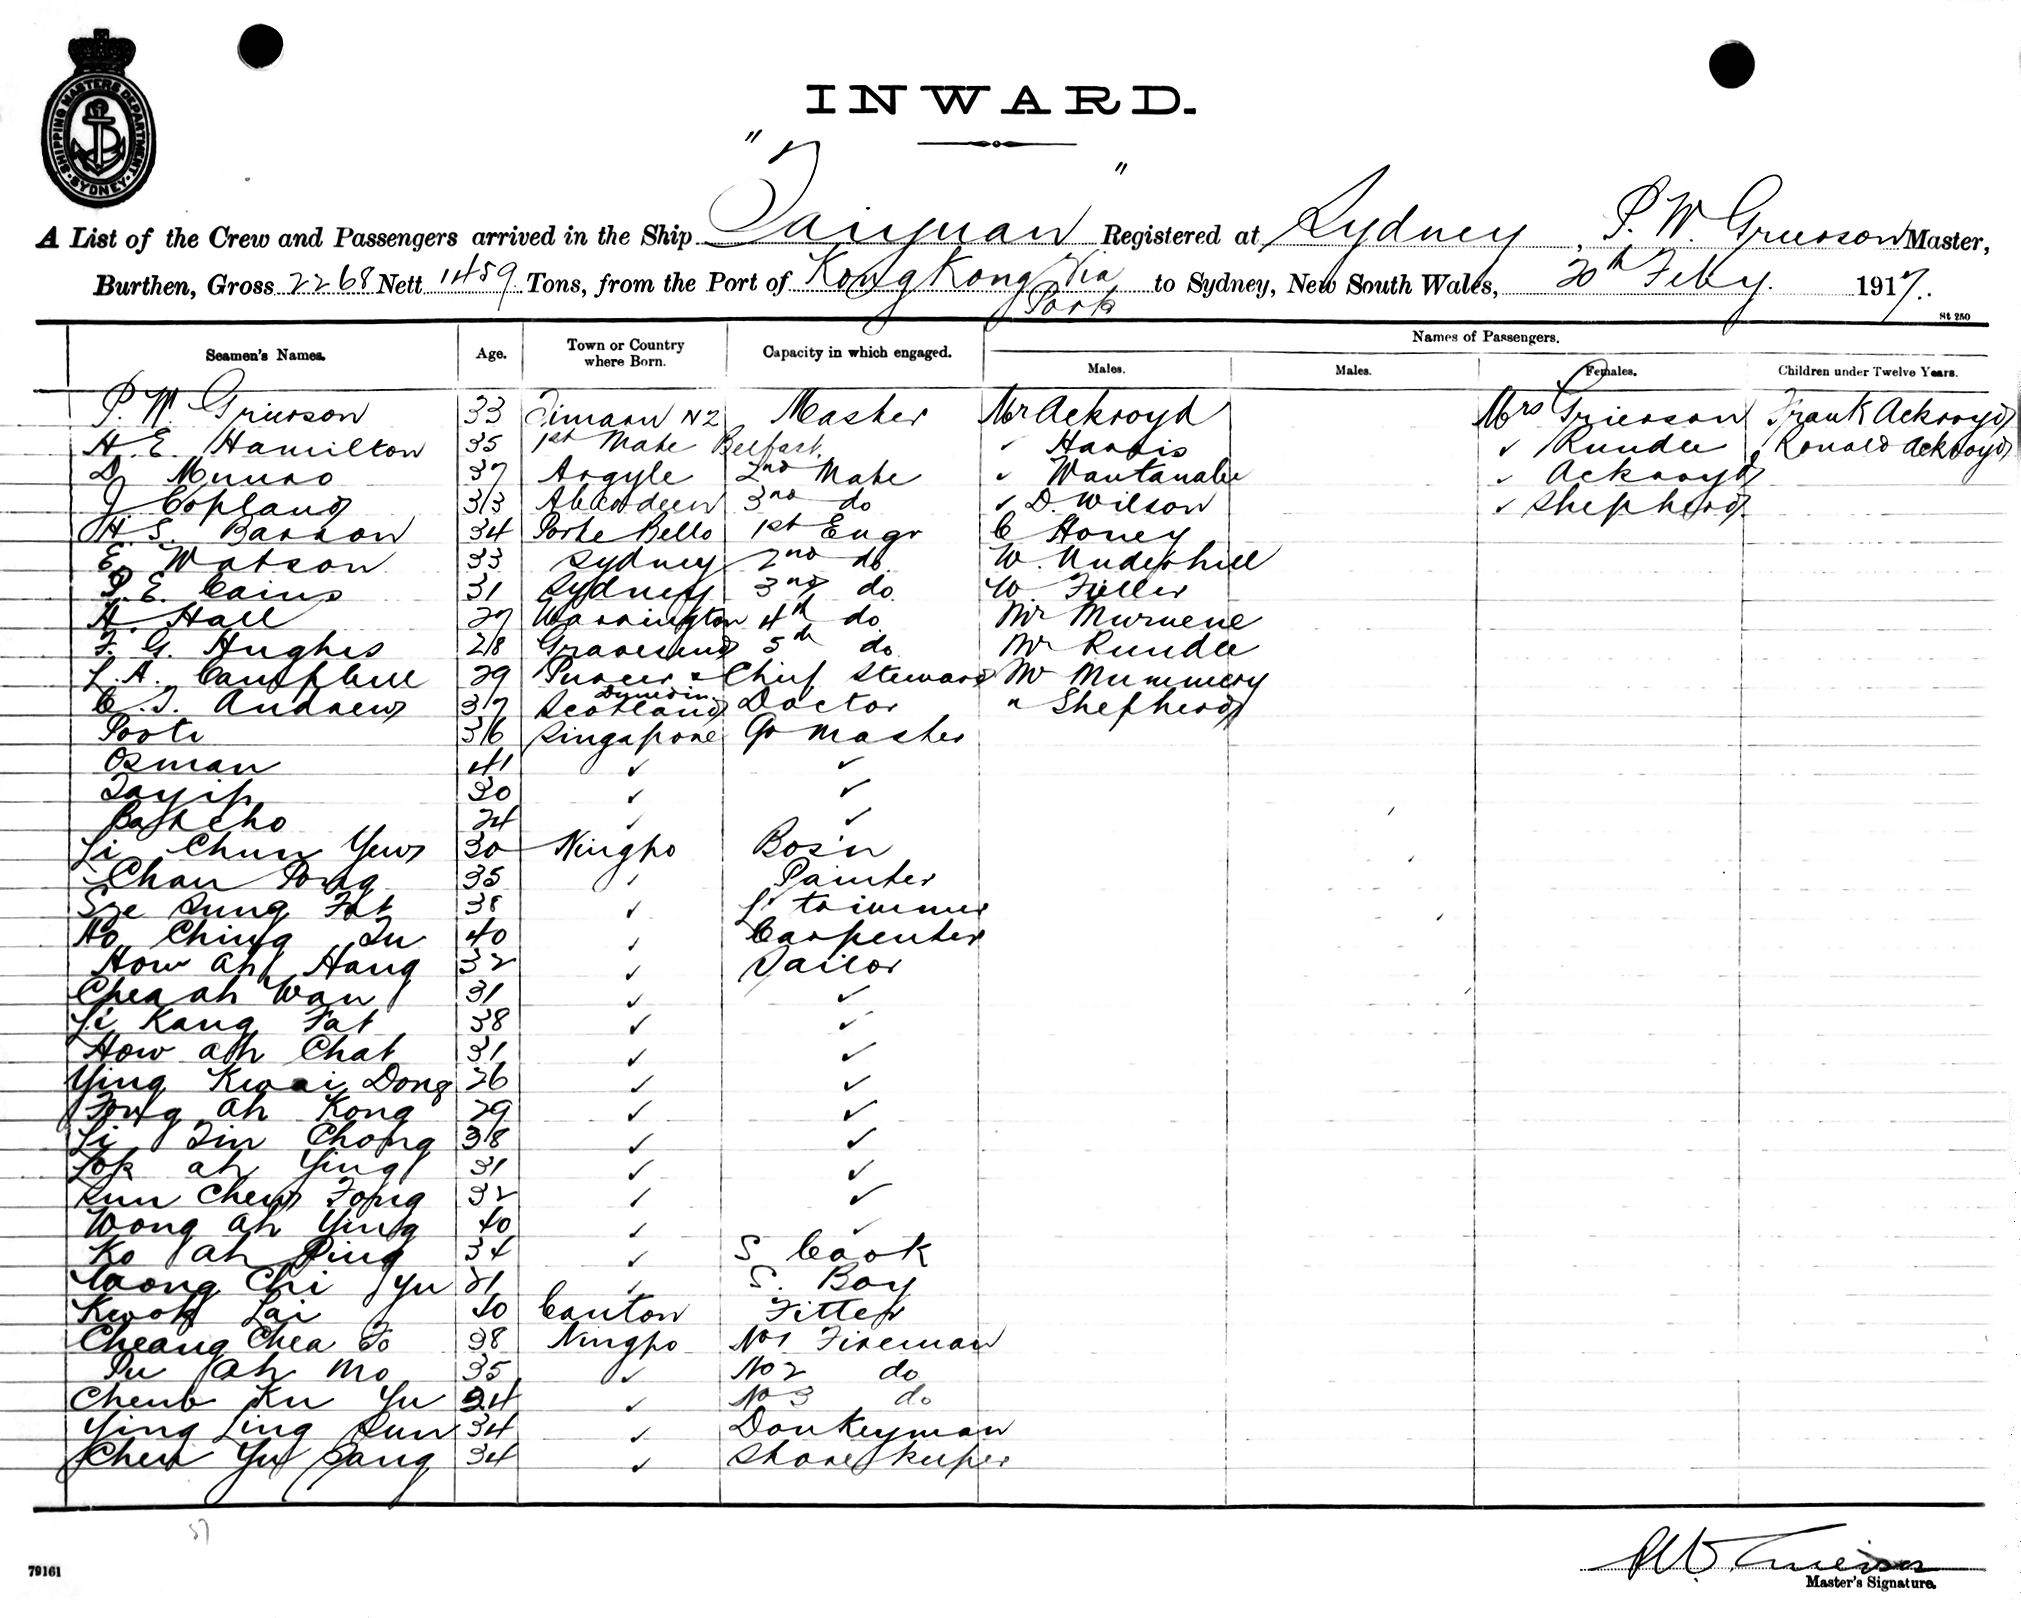 SHIPPING MASTERS DEPARTMENT · SYDNEY ·
INWARD.
A List of the Crew and Passengers arrived in the Ship "Taiyuan" Registered at Sydney, P. W. Grierson Master,
Burthen, Gross 2268 Nett 1459 Tons, from the Port of Hong Kong Via Ports to Sydney, New South Wales, 20th Feby. 1917.
St 250
Seamen's Names. Age. Town or Country where Born. Capacity in which engaged. Names of Passengers.
Males. Males. Females. Children under Twelve Years.
P. W. Grierson 33 Timaru NZ Master Mr Ackroyd Mrs Grierson Frank Ackroyd
H. E. Hamilton 35 1st Mate Belfast ✓ Harris ✓ Rundle Ronald Ackroyd
D Munro 37 Argyle 2nd Mate ✓ Wantanabe ✓ Ackroyd
J Copland 33 Aberdeen 3rd do ✓ D. Wilson ✓ Shepherd
H. S. Barron 34 Porte Bello 1st Engr C Honey
E. Watson 33 Sydney 2nd do W. Underhill
P. E. Cains 31 Sydney 3rd do W Fuller
H. Hall 27 Warrington 4th do Mr Murnene
F. G. Hughes 28 Gravesend 5th do Mr Rundle
L. A. Campbell 29 Purser & Chief Steward Dunedin Mr Mummery
C. T. Andrews 37 Scotland Doctor " Shepherd
Pooti 36 Singapore Qr Master
Osman 41 ✓ ✓
Tayip 30 ✓ ✓
24 ✓ ✓
Li Chun Yew 30 Ningpo Bos'n
Chan Pong 35 ✓ Painter
Sze Sung Fat 38 ✓ L. trimmer
Ho Ching Tu 40 ✓ Carpenter
How ah Hang 32 ✓ Sailor
Chea ah Wan 31 ✓ ✓
Li Kang Fat 38 ✓ ✓
How ah Chat 31 ✓ ✓
Ying Kwai Dong 26 ✓ ✓
Fong ah Kong 29 ✓ ✓
Li Tin Chong 38 ✓ ✓
Lok ah Ying 31 ✓ ✓
Sun Chew Fong 32 ✓ ✓
Wong ah Ying 40 ✓ ✓
Ko ah Ping 34 ✓ S. Cook
Woong Chi Yu 21 ✓ S. Boy
Kwok Lai 40 Canton Fitter
Cheang Chea Fo 38 Ningpo No 1 Fireman
Pu ah Mo 35 ✓ No 2 do
Ku Yu 34 ✓ No 3 do
Ying Ling Sun 34 ✓ Donkeyman
Chen Yu Sang 34 ✓ Store keeper
57
79161
P. W. Grierson
Master's Signature.